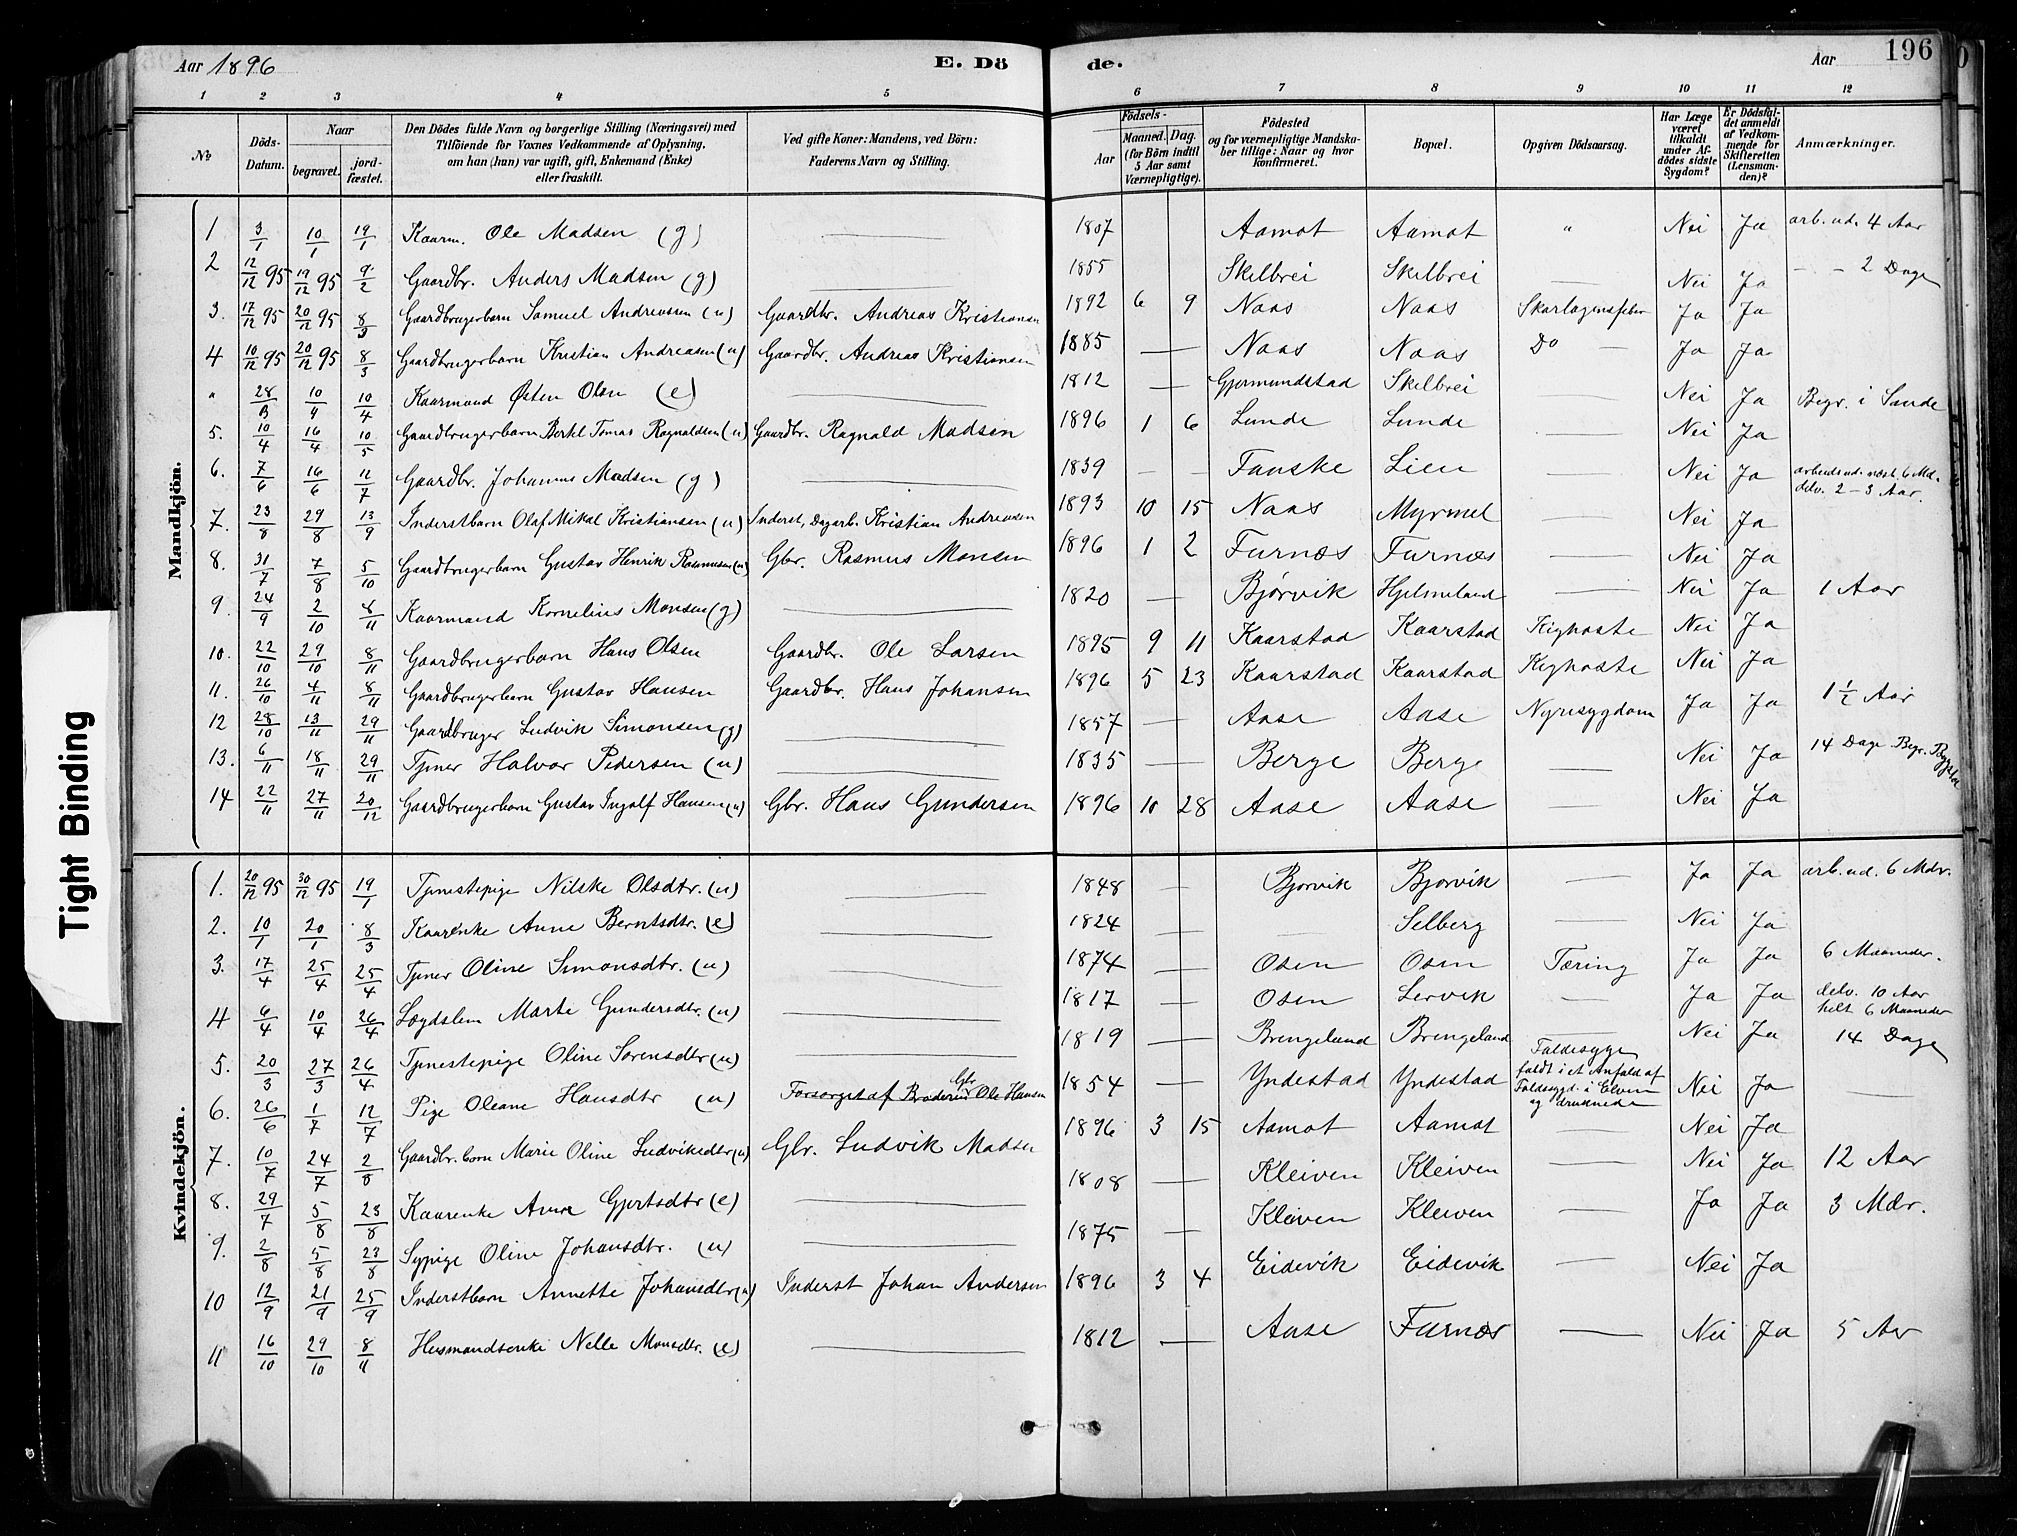 Aar 1896 E. Dö de. Aar 196
1 2 3 4 5 6 7 8 9 10 11 12
No Döds-Datum. Naar begravet. jord-fæstet. Den Dödes fulde Navn og borgerlige Stilling (Næringsvei) med Tilföiende for Voxnes Vedkommende af Oplysning, om han (hun) var ugift, gift, Enkemand (Enke) eller fraskilt. Ved gifte Koner: Mandens, ved Börn: Faderens Navn og Stilling. Födsels- Aar Maaned. Dag. (for Börn indtil 5 Aar samt Værnepligtige). Födested og for værnepligtige Mandska-ber tillige: Naar og hvor konfirmeret. Bopæl. Opgiven Dödsaarsag. Har Læge været tilkaldt under Af-dödes sidste Sygdom? Er Dödsfal-det anmeldt af Vedkom-mende for Skifteretten (Lensman-den)? Anmærkninger.
Mandkjön.
1 3/1 10/1 19/1 Kaarm. Ole Madsen (g) 1807 Aamot Aamot " Nei Ja arb.ud. 4 Aar
2 12/12 95 19/12 95 9/2 Gaardbr. Anders Madsen (g) 1855 Skilbrei Skilbrei Nei Ja - - 2 Dage
3. 17/12 95 20/12 95 8/3 Gaardbrugerbarn Samuel Andreassen (u) Gaardbr. Andreas Kristiansen 1892 6 9 Naas Naas Skarlagensfeber Ja Ja
4 10/12 95 20/12 95 8/3 Gaardbrugerbarn Kristian Andreasen (u) Gaardbr. Andreas Kristiansen 1885 Naas Naas Do Ja Ja
" 28/3 10/4 10/4 Kaarmand Østen Olsen (e) 1812 Gjermundstad Skilbrei Nei Ja Begr. i Sande
5. 10/4 16/4 10/5 Gaardbrugerbarn Bertel Tomas Ragnaldsen (u) Gaardbr. Ragnald Madsen 1896 1 6 Lunde Lunde Nei Ja
6. 7/6 16/6 11/7 Gaardbr. Johannes Madsen (g) 1839 Fauske Lien Nei Ja arbeidsud. næst. 6 Md. delv. 2-3 Aar.
7. 23/8 29/8 13/9 Inderstbarn Olaf Mikal Kristiansen (u) Inderst, Dagarb. Kristian Andreasen 1893 10 15 Naas Myrmel Nei Ja
8. 31/7 7/8 5/10 Gaardbrugerbarn Gustav Henrik Rasmussen (u) Gbr. Rasmus Monsen 1896 1 2 Furnæs Furnæs Nei Ja
9. 24/9 2/10 8/11 Kaarmand Kornelius Monsen (g) 1820 Bjørvik Hjelmeland Nei Ja 1 Aar
10. 22/10 29/10 8/11 Gaardbrugerbarn Hans Olsen Gaardbr. Ole Larsen 1895 9 11 Kaarstad Kaarstad Kighoste Nei Ja
11. 26/10 4/11 8/11 Gaardbrugerbarn Gustav Hansen Gaardbr. Hans Johansen 1896 5 23 Kaarstad Kaarstad Kighoste Nei Ja
12 28/10 13/11 29/11 Gaardbruger Ludvik Simonsen (g) 1857 Aase Aase Nyresygdom Ja Ja 1 1/2 Aar
13. 6/11 18/11 29/11 Tjener Halvor Pedersen (u) 1835 Berge Berge Nei Ja 14 Dage. Begr. Bygstad
14 22/11 27/11 20/12 Gaardbrugerbarn Gustav Ingolf Hansen (u) Gbr. Hans Gundersen 1896 10 28 Aase Aase Nei Ja
Kvindekjön.
1. 20/12 95 30/12 95 19/1 Tjenestepige Nilske Olsdtr. (u) 1848 Bjorvik Bjorvik Ja Ja arb.ud. 6 Mdr.
2. 10/1 20/1 8/3 Kaarenke Anne Berntsdtr. (e) 1824 Selberg Nei Ja
3. 17/4 25/4 25/4 Tjener Oline Simonsdtr. (u) 1874 Osen Osen Tæring Ja Ja 6 Maaneder.
4 6/4 10/4 26/4 Lægdslem Marte Gundersdtr. (u) 1817 Osen Lervik Ja Ja delv. 10 Aar helt 6 Maaneder
5. 20/3 27/3 26/4 Tjenestepige Oline Sørensdtr (u) 1819 Brengeland Brengeland Nei Ja 14 Dage
6. 26/6 1/7 12/7 Pige Oleane Hansdtr (u) Forsørget af Broderen Gbr Ole Hansen 1854 Yndestad Yndestad Faldesyge faldt i et Anfald af Faldesygd. i Elven og druknede Nei Ja
7. 10/7 24/7 2/8 Gaardbr.barn Marie Oline Ludviksdtr (u) Gbr. Ludvik Madsen 1896 3 15 Aamot Aamot Nei Ja
8. 29/7 5/8 23/8 Kaarenke Anne Gjertsdtr (e) 1808 Kleiven Kleiven Nei Ja 12 Aar
9. 2/8 5/8 23/8 Sypige Oline Johansdtr. (u) 1875 Kleiven Kleiven Ja Ja 3 Mdr.
10 12/9 21/9 25/9 Inderstbarn Annette Johansdtr (u) Inderst Johan Andersen 1896 3 4 Eidevik Eidevik Nei Ja
11 16/10 29/10 8/11 Husmandsenke Nelle Monsdtr. (e) 1812 Aase Furnæs Nei Ja 5 Aar
Tight Binding